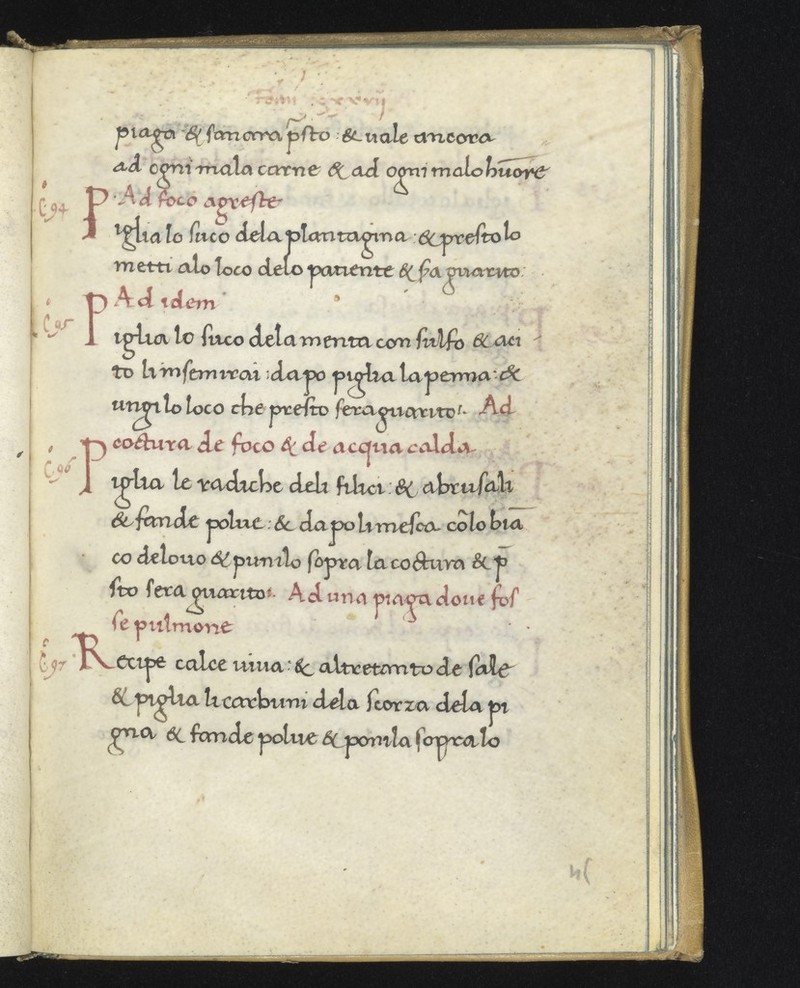 piaga & sanara p̄sto : & uale ancora
ad ogni mala carne & ad ogni malo hūore
C̊ 94 · Ad foco agreste
Piglia lo suco dela plantagina : & presto lo
metti alo loco delo patiente & s̄a guarito
Ad idem
C̊ 95 Piglia lo suco dela menta con sulfo & aci
to li insemirai : da po piglia la penna : &
ungi lo loco che presto sera guarito. Ad
coctura de foco & de acqua calda
C̊ 96 Piglia le radiche deli filici : & abrusali
& fande polue : & da po li mesca cō lo biā
co de louo & punilo sopra la coctura & p̄
sto sera guarito. Ad una piaga doue fos
se pulmone
C̊ 97 Recipe calce uiua : & altretanto de sale
& piglia li carbuni dela scorza dela pi
gna & fande polue & ponila sopra lo